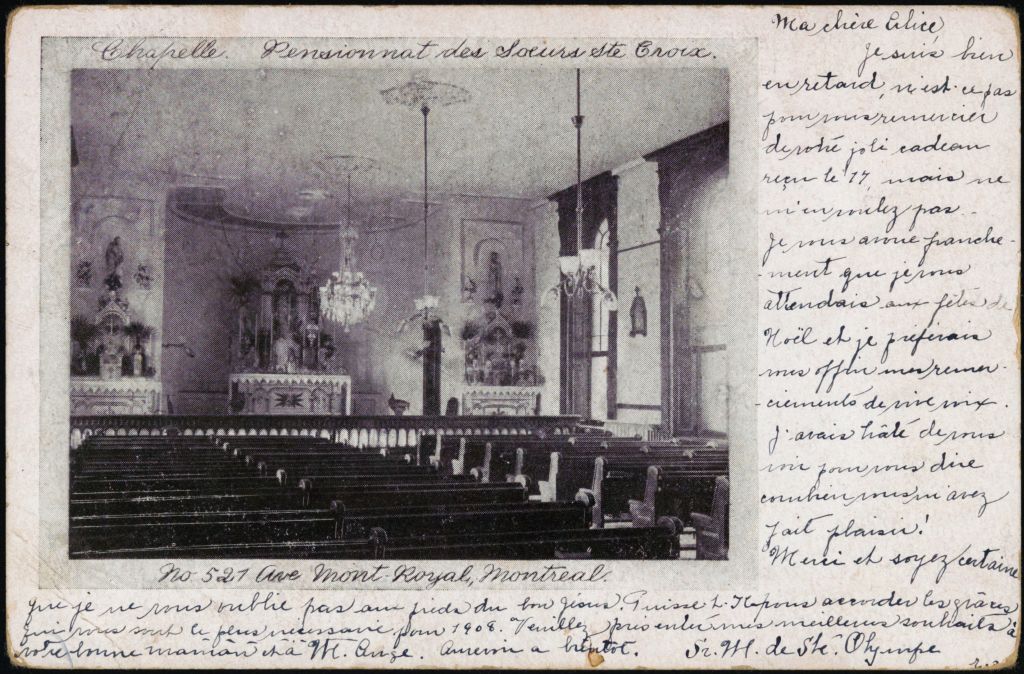 Chapelle. Pensionnat des Soeurs Ste Croix.
No 521 Ave Mont-Royal, Montreal.
Ma chère Alice,
Je suis bien
en retard, n'est-ce pas
pour vous remercier
de votre joli cadeau
reçu le 17, mais ne
m'en voulez pas.
Je vous avoue franche-
-ment que je vous
attendais aux fêtes de
Noël et je préférais
vous offrir mes remer-
-ciements de vive voix.
J'avais hâte de vous
voir pour vous dire
combien vous m'avez
fait plaisir!
Merci et soyez certaine
que je ne vous oublie pas aux pieds du bon Jésus. Puisse-t-Il vous accorder les grâces
qui vous sont le plus nécessaire pour 1908. Veuillez présenter mes meilleurs souhaits à
votre bonne maman et à M. Ange. Aurevoir a bientot. Sr. M. de Ste. Olympe